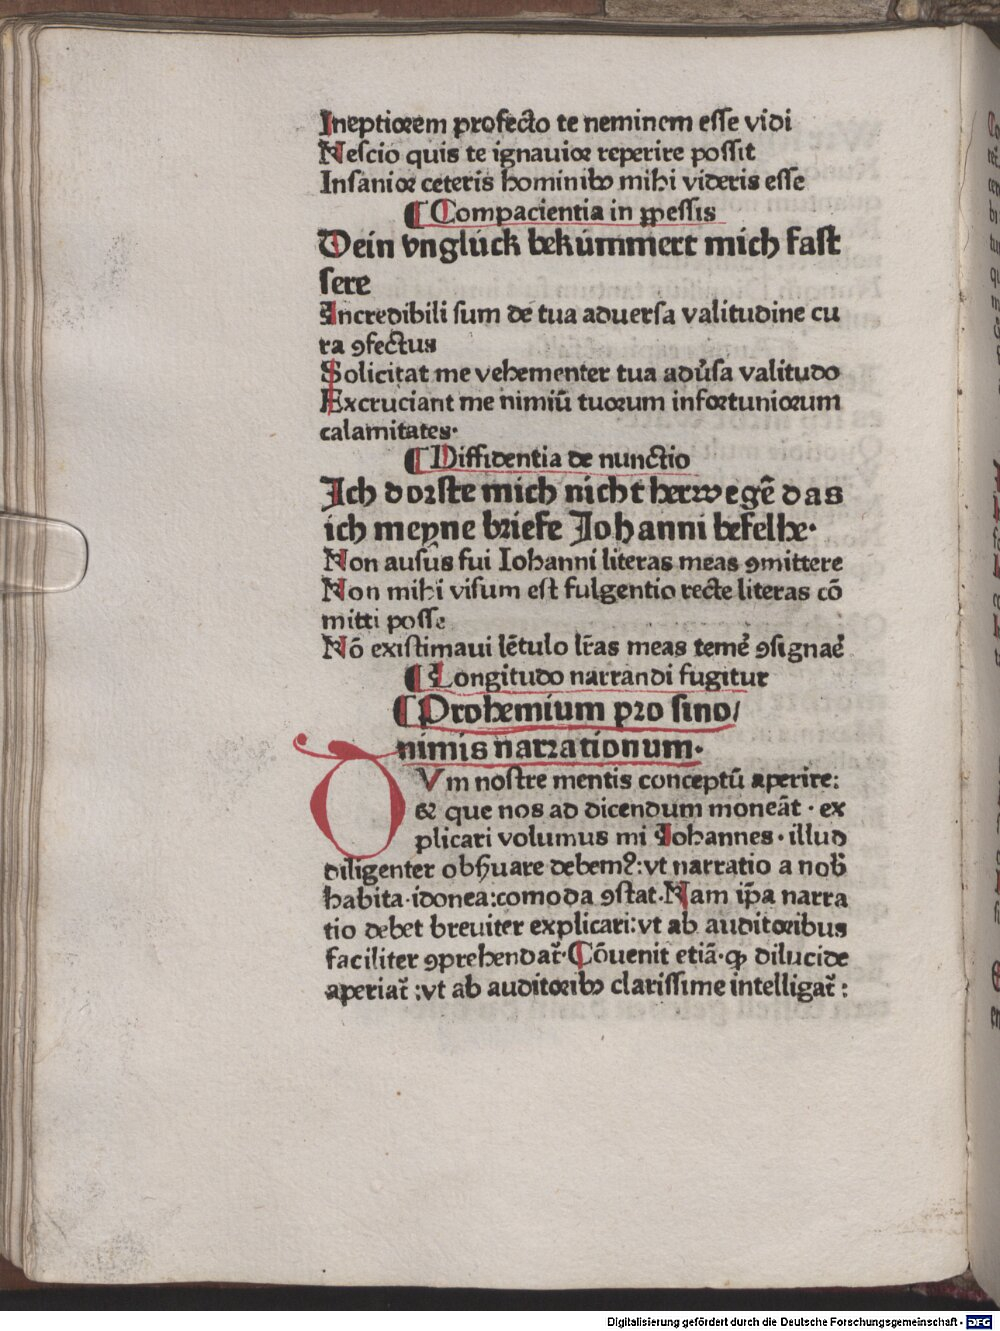 Ineptiorem profecto te neminem esse vidi
Nescio quis te ignauior reperire possit
Insanior ceteris hominibꝰ mihi videris esse
¶ Compacientia in ꝓpessis
Dein vnglück bekümmert mich fast
sere
Incredibili sum de tua aduersa valitudine cu
ra ꝯfectus
Solicitat me vehementer tua adũsa valitudo
Excruciant me nimiũ tuorum infortuniorum
calamitates.
¶ Diffidentia de nunctio
Ich dorste mich nicht herwegē das
ich meyne briefe Johanni befelhe.
Non ausus fui Iohanni literas meas ꝯmittere
Non mihi visum est fulgentio recte literas cō
mitti posse
Nō existimaui lētulo lr̄as meas temē ꝯsignaē
¶ Longitudo narrandi fugitur
¶ Prohemium pro sino/
nimis narrationum.
Vm nostre mentis conceptū aperire:
& que nos ad dicendum moneāt · ex
plicari volumus mi Iohannes · illud
diligenter obẜuare debemꝰ: vt narratio a nob̄
habita · idonea: comoda ꝯstat. Nam ip̄a narra
tio debet breuiter explicari: vt ab auditoribus
faciliter ꝯprehendat᷑. Cōuenit etiā · ꝙ dilucide
aperiat᷑ : vt ab auditoribꝰ clarissime intelligat᷑ :
Digitalisierung gefördert durch die Deutsche Forschungsgemeinschaft - DFG